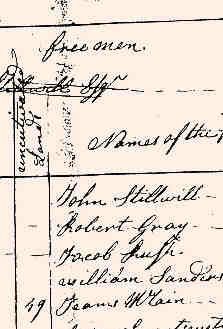 freemen.
Esqr
uncultivated
Land
Names of the
John Stillwill
Robert Gray
Jacob Rush
William Sanders
49 Jeams McLain